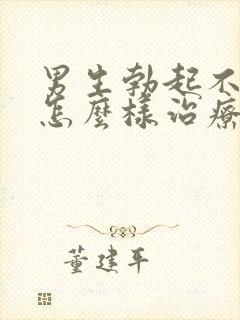 男生勃起不
怎麼樣治療
董建平